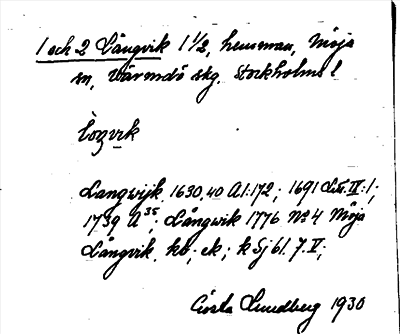 1 och 2 Långvik 1 1/2, hemman, Möja
sn, Värmdö skg. Stockholms l
Lɔŋvik
Langwijk 1630.40 A1:172; 1691 Litt. II:1;
1739 A 35; Långwik 1776 No 4 Möja
Långvik kb; ek; k Sj 61 7. V;
Gösta Lundberg 1930